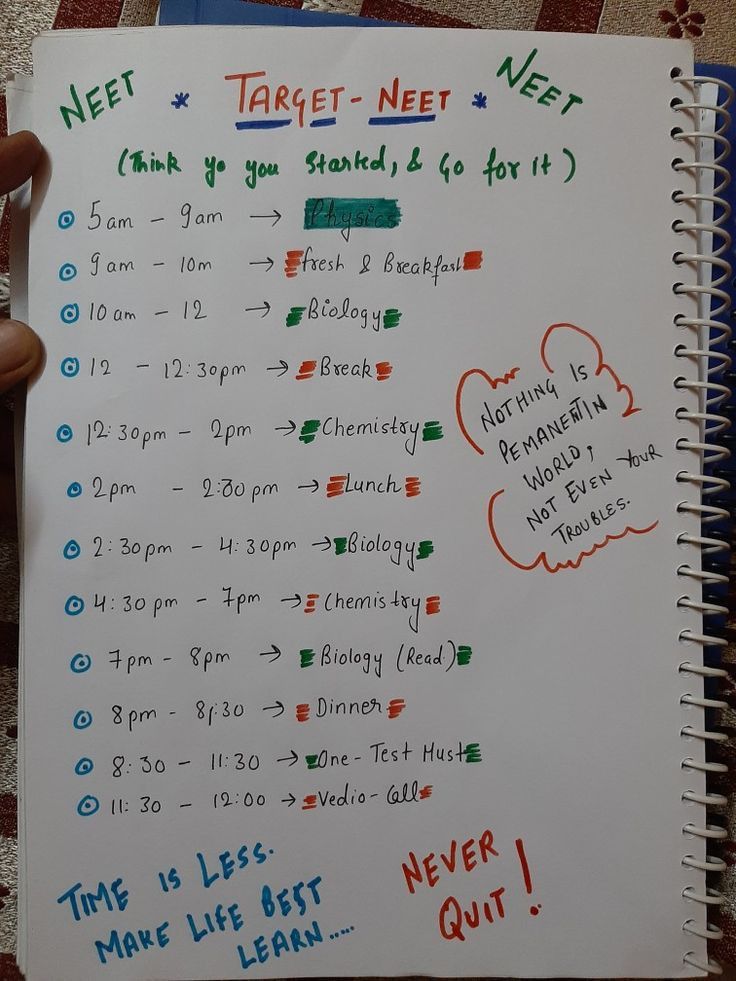 NEET * TARGET - NEET * NEET
(Think yo you started, & Go for it)
5am - 9am → Physics
9am - 10m → fresh & Breakfast
10 am - 12 → Biology
12 - 12:30pm → Break
12:30pm - 2pm → Chemistry
2pm - 2:30 pm → Lunch
2:30pm - 4:30pm → Biology
4:30 pm - 7pm → Chemistry
7pm - 8pm → Biology (Read)
8pm - 8:30 → Dinner
8:30 - 11:30 → One-Test Must
11:30 - 12:00 → Vedio-Call
NOTHING IS
PEMANENT IN
WORLD,
NOT EVEN YOUR
TROUBLES.
TIME IS LESS.
MAKE LIFE BEST
LEARN.....
NEVER
QUIT!